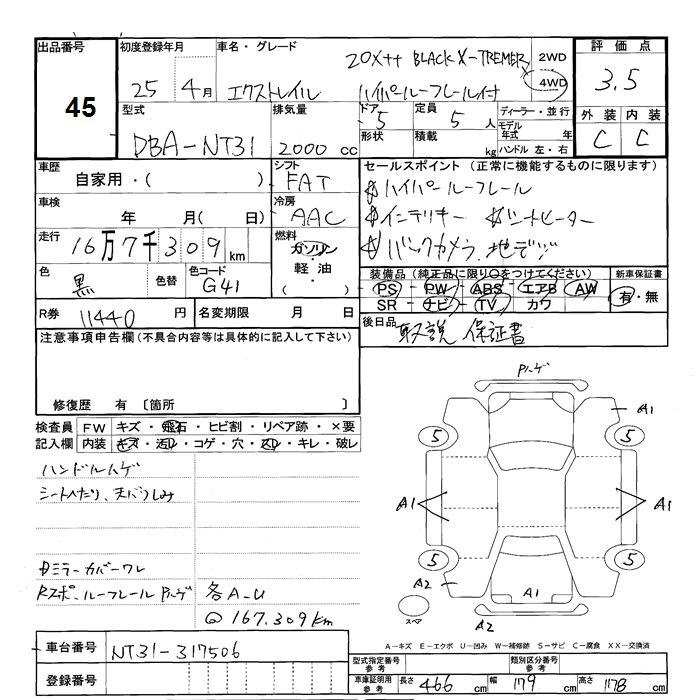 出品番号
45
初度登録年月
25年 4月
車名・グレード
20Xtt BLACK X-TREMER
エクストレイル ハイパールーフレール付
2WD
4WD
評価点
3.5
外装 内装
C C
型式
DBA-NT31
排気量
2000 cc
ドア 5
形状
定員 5人
積載 kg
ディーラー・並行
モデル年式 年
ハンドル 左・右
車歴
自家用・( )
シフト
FAT
車検
年 月( 日)
冷房
AAC
走行
16万7千309km
燃料
ガソリン
・
軽油
・
( )
色
黒
色替
色コード
G41
R券 11440円
名変期限 月 日
セールスポイント(正常に機能するものに限ります)
ハイパールーフレール
インテリキー シートヒーター
バックカメラ、地デジ
装備品(純正品に限り○をつけてください)
PS・PW・ABS・エアB・AW
SR・ナビ・TV・カワ
新車保証書
有・無
後日品
取説 保証書
注意事項申告欄(不具合内容等は具体的に記入して下さい)
修復歴 有 〔箇所 〕
検査員記入欄
FW キズ・飛石・ヒビ割・リペア跡・×要
内装 キズ・汚レ・コゲ・穴・スレ・キレ・破レ
ハンドルハゲ
シートへたり、天バリしみ
ミラーカバーワレ
Rスポ、ルーフレールPハゲ
各A-U
@167.309km
Pハゲ
A1
5 5
A1 A1
5 5
A2 A1
スペア
A2
A-キズ E-エクボ U-凹み W-補修跡 S-サビ C-腐食 XX-交換済
車台番号 NT31-317506
登録番号
型式指定番号 参考
類別区分番号 参考
車庫証明用 参考
長さ 466cm 幅 179cm 高さ 178cm